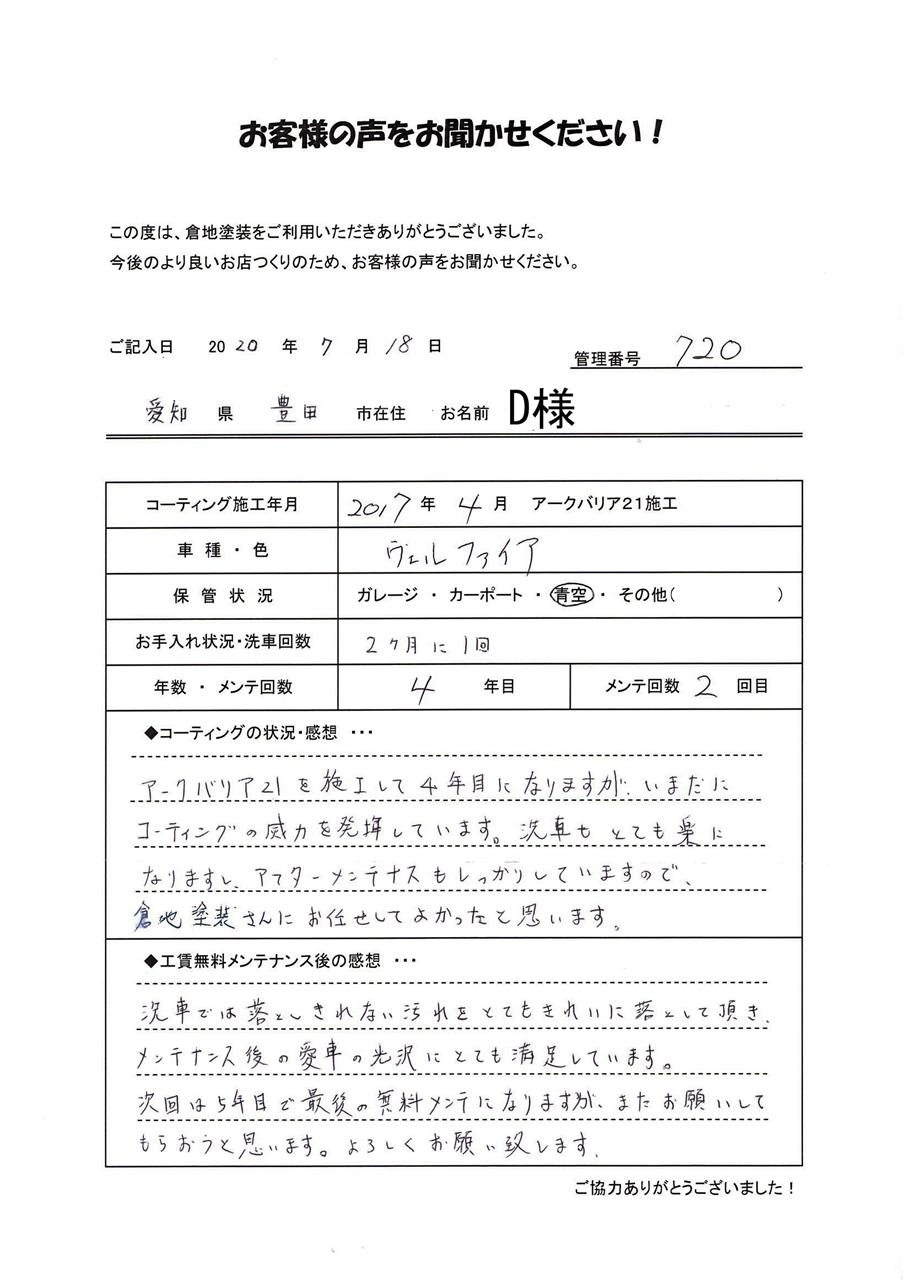 お客様の声をお聞かせください！
この度は、倉地塗装をご利用いただきありがとうございました。
今後のより良いお店つくりのため、お客様の声をお聞かせください。
ご記入日 2020 年 7 月 18 日
管理番号 720
愛知 県 豊田 市在住 お名前 D様
コーティング施工年月 2017 年 4 月 アークバリア21施工
車種・色 ヴェルファイア
保管状況 ガレージ ・ カーポート ・ 青空 ・ その他( )
お手入れ状況・洗車回数 2ヶ月に1回
年数 ・ メンテ回数 4 年目 メンテ回数 2 回目
◆コーティングの状況・感想 ･･･
アークバリア21を施工して4年目になりますが、いまだに
コーティングの威力を発揮しています。洗車もとても楽に
なりますし、アフターメンテナスもしっかりしていますので、
倉地塗装さんにお任せしてよかったと思います。
◆工賃無料メンテナンス後の感想 ･･･
洗車では落としきれない汚れをとてもきれいに落として頂き、
メンテナンス後の愛車の光沢にとても満足しています。
次回は5年目で最後の無料メンテになりますが、またお願いして
もらおうと思います。よろしくお願い致します。
ご協力ありがとうございました！